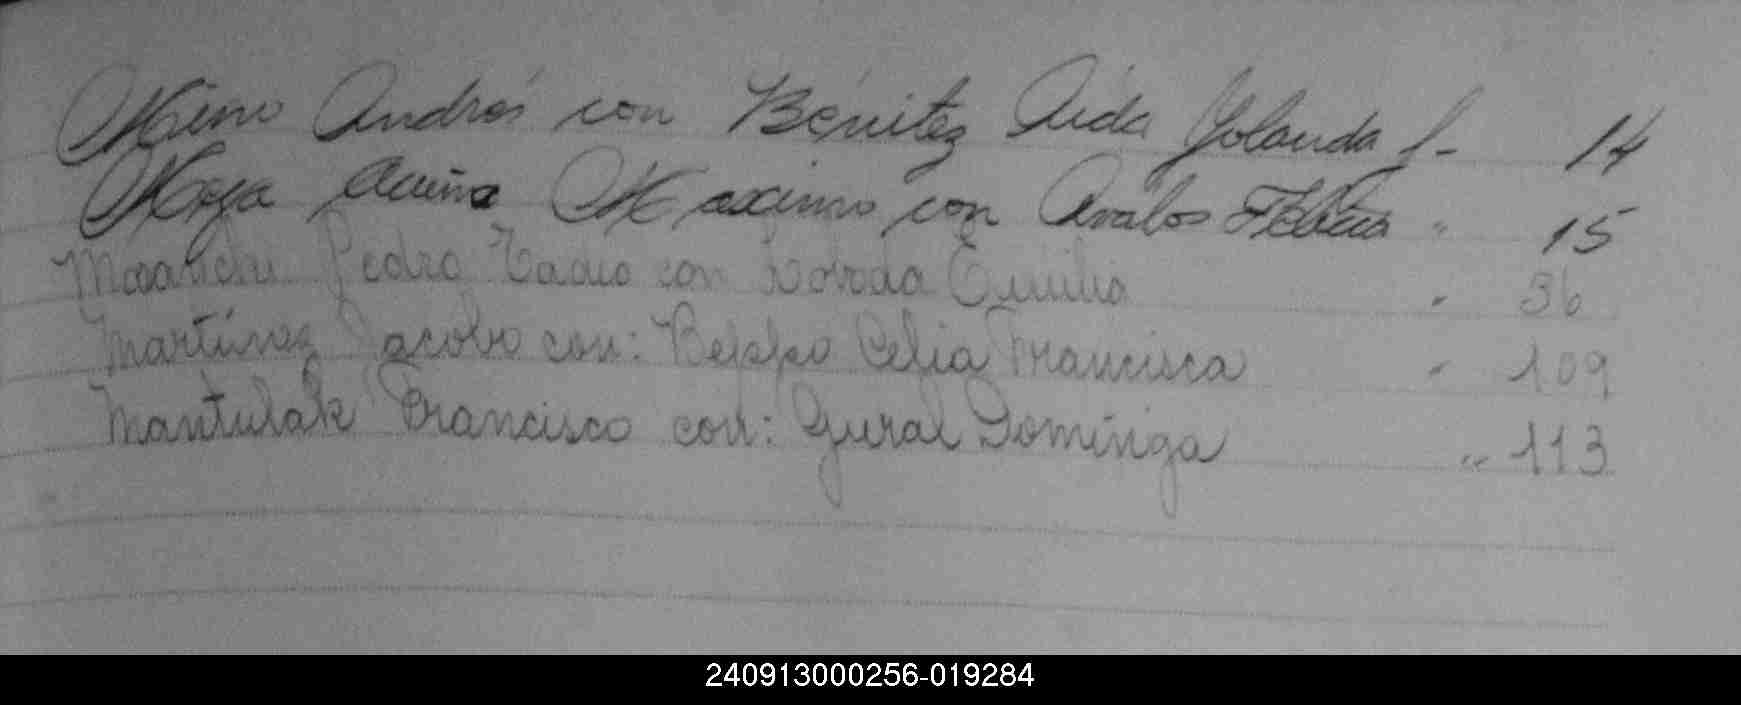 Mino Andrés con Bénitez Aida Yolanda f- 14
Meza Acuña Maximo con Avalos " 15
Pedro Tadeo con Emilia " 36
Martínez Jacobo con: Beppo Celia Francisca " 109
Mantulak Francisco con: Gural Dominga " 113
240913000256-019284